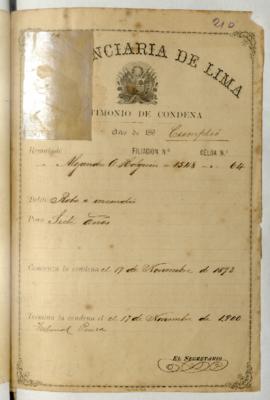 210
NCIARIA DE LIMA
TIMONIO DE CONDENA
Año de 189 Cumplió
Rematado FILIACION N.º CELDA N.º
Alejandro O. Holguin 1548 64
Delito Robo e incendio
Pena Siete años
Comienza la condena el 17 de Noviembre de 1893
Termina la condena el 17 de Noviembre de 1900
Tribunal
EL SECRETARIO